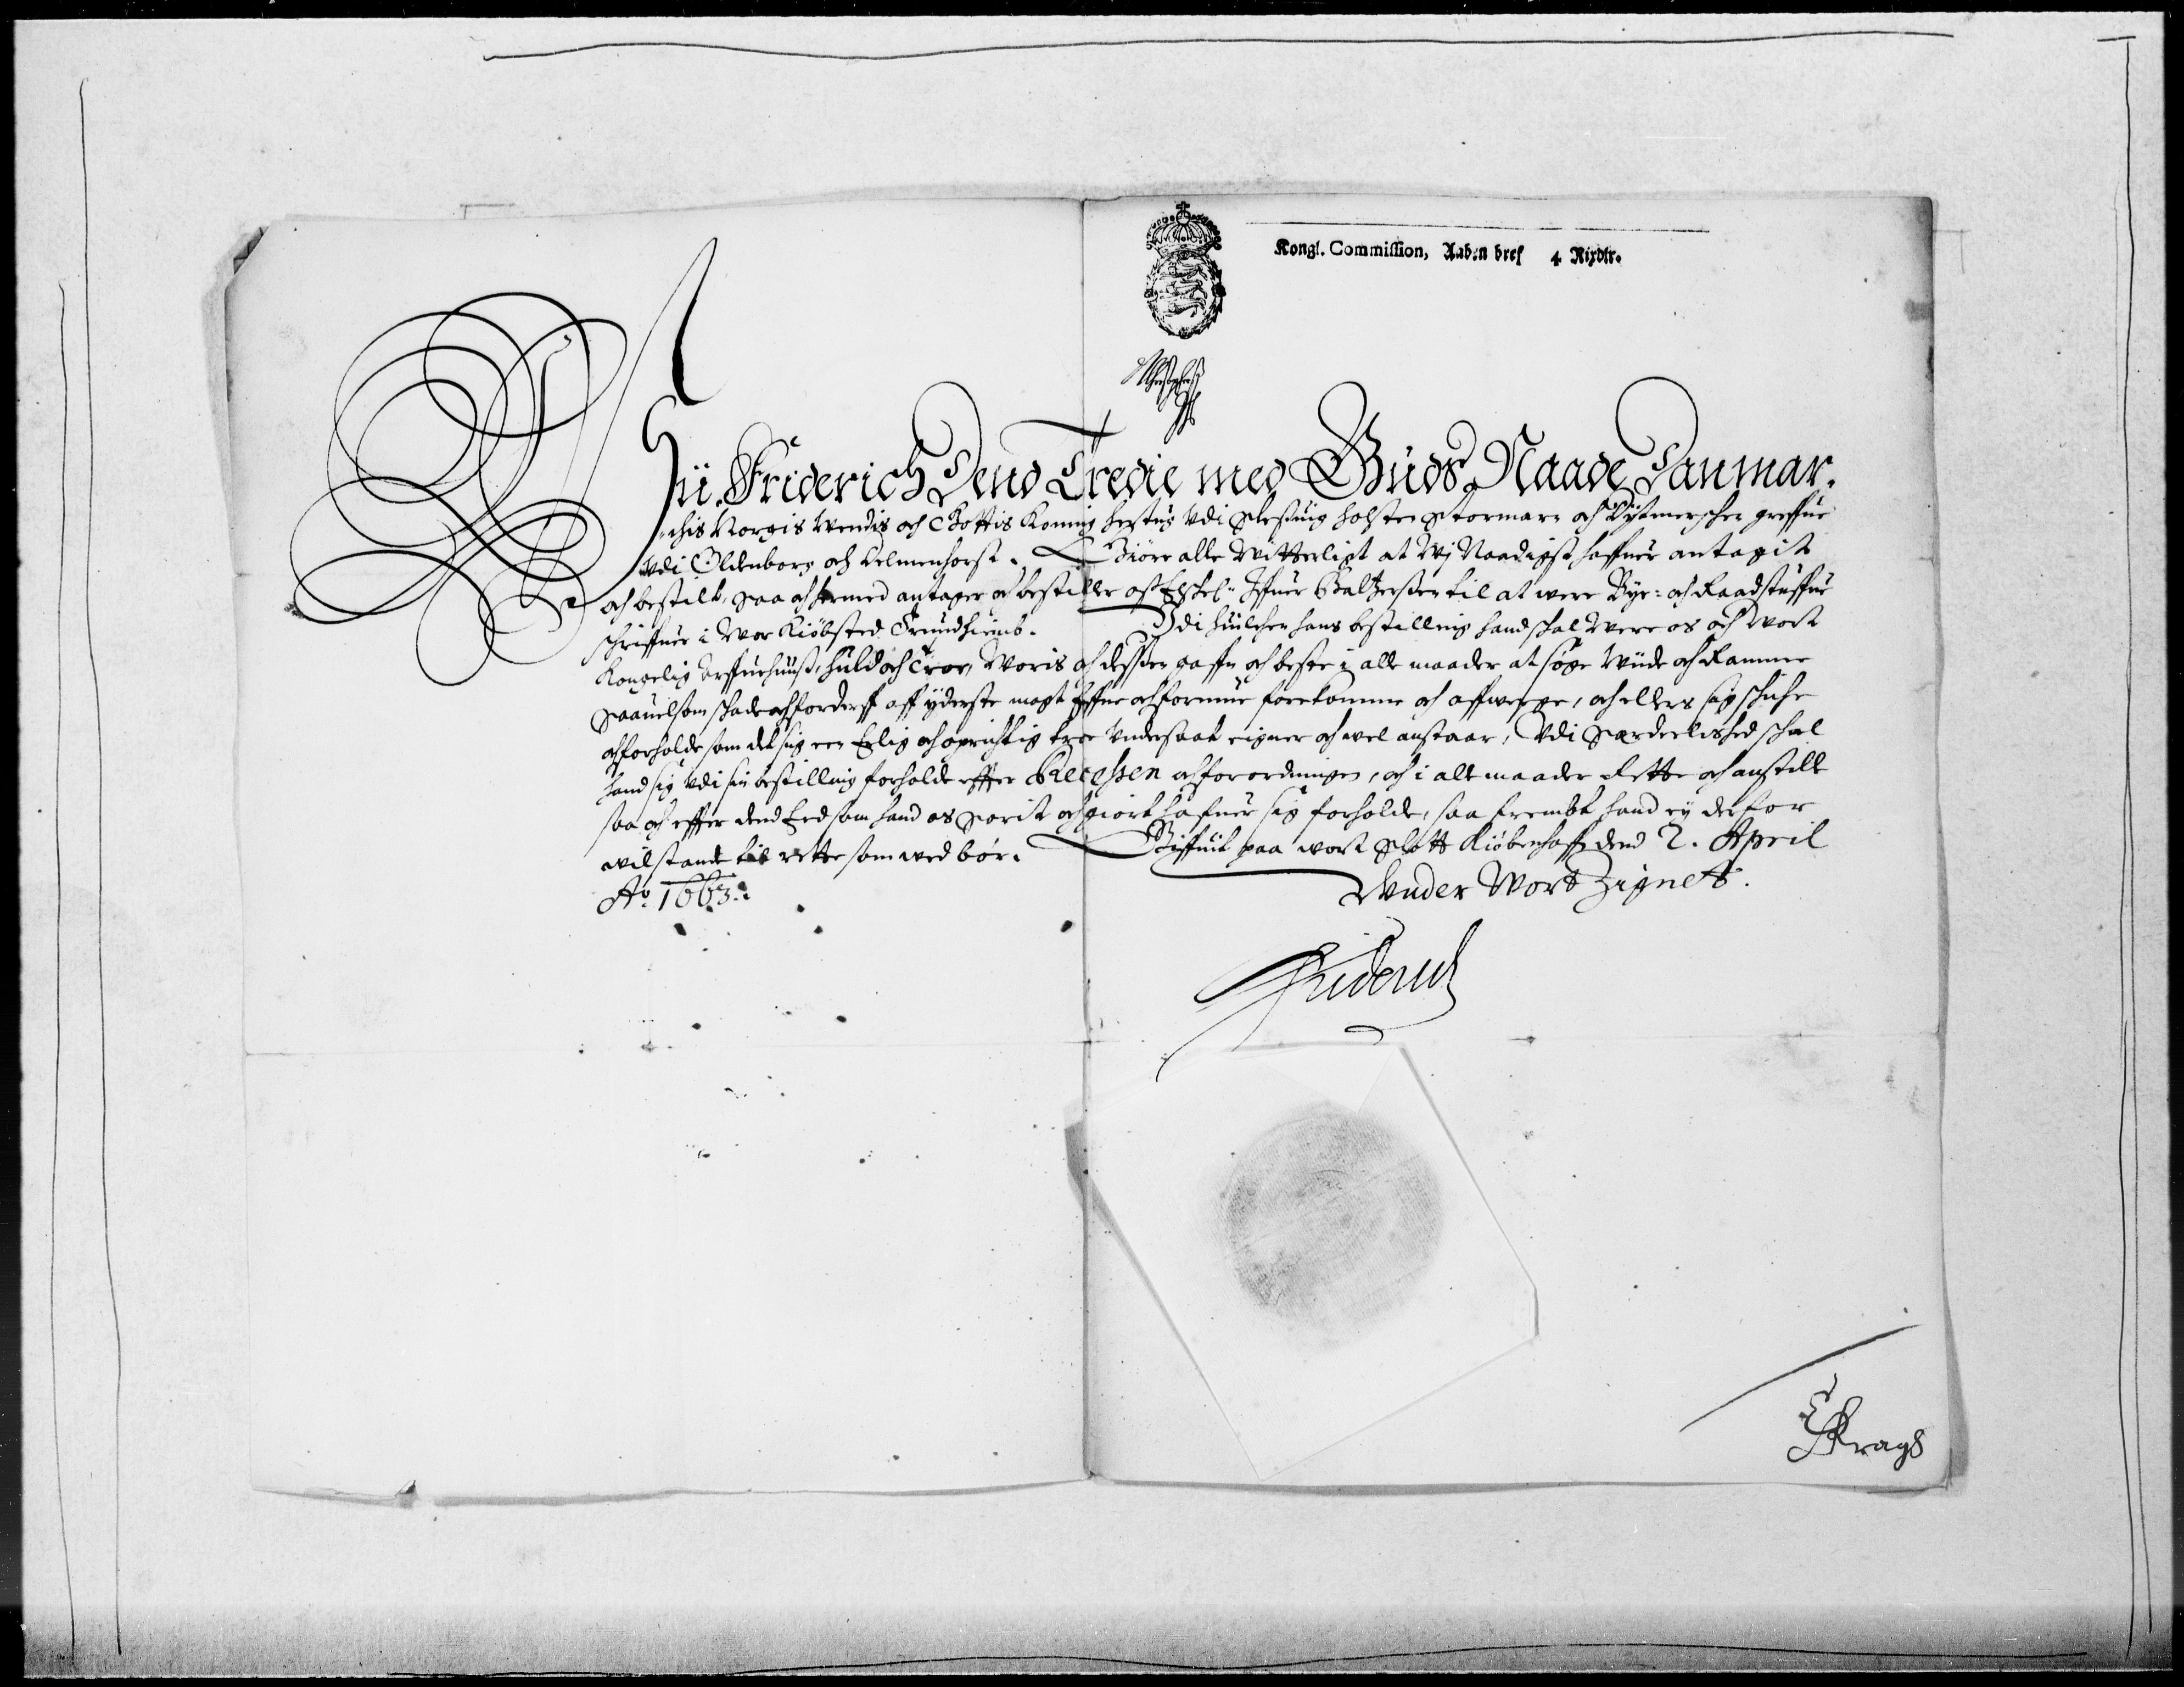 Kongl. Commission, Aaben bref 4 Rixdlr.
Wii Friderich Dend Tredie med Guds Naade Danmar-
chis Norgis Wendis och Gottis Konning hertug Udi Sleßuig Holsten Stormarn och Dytmerschen greffue
Udi Oldenborg och Delmenhorst. Giöre alle Witterligt at Wj Naadigst haffuer antagit
och bestilt, saa och hermed antager och bestiller oß Elskel: Iffuer Baltzerßen til at were Bye= och Raadstuffue
schriffuer i Wor Kiöbsted Trundhiemb. Udi huilchen hans bestilling hand schal Were os och Wort
Kongelig Arffuehuuß, huld och Troe, Woris och desßen gaffn och beste i alle maader at söge Wiide och Ramme
Saauelsom schade och forderff aff yderste magt Effne och formue forekomme och affwerge, och ellers sig schiche
och forholde som det sig een Erlig och oprichtig troe Undersaat eigner och wel anstaar, Udi Serdeelished schal
hand sig Udi sin bestilling forholde effter Recessen och forordninger, och i alt maader Rette och anstille
saa och effter dend Eed som hand os Sorit och giort hafuer sig forholde, saa frembt hand ey derfor
wil stande til rette som wed bör. Giffuit paa wort Slott Kiöbenhaffn dend 2. April
Ao 1663.
Under Wort Zignet.
Friderich
E Kragh